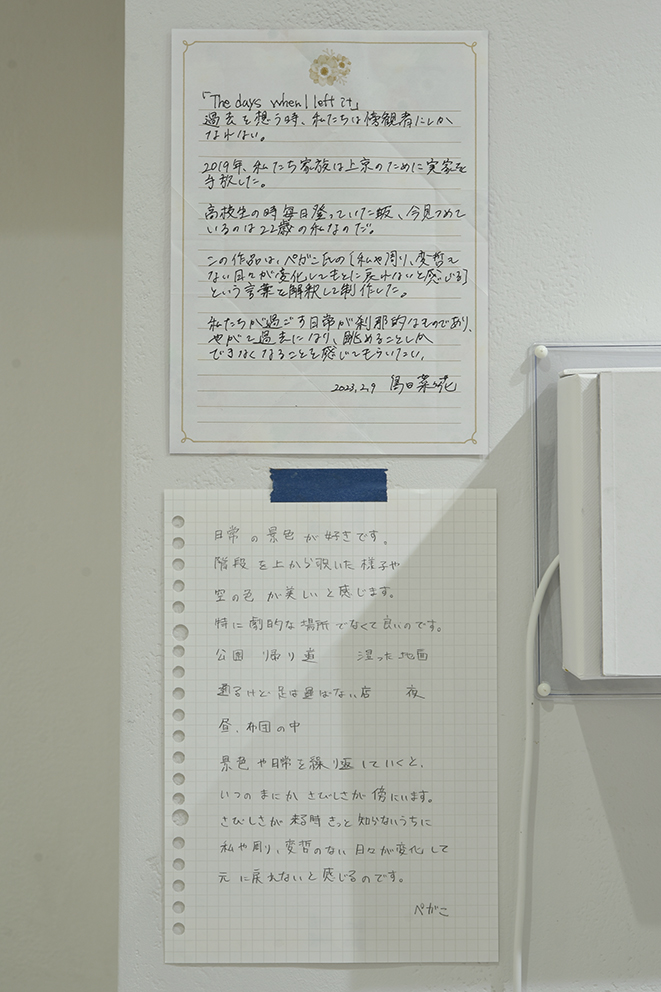 「The days when I left it」
過去を想う時、私たちは傍観者にしか
なれない。
2019年、私たち家族は上京のために実家を
手放した。
高校生の時毎日登っていた坂、今見つめて
いるのは22歳の私なのだ。
この作品は、ペガこ氏の「私や周り、変哲も
ない日々が変化してもとに戻れないと感じる」
という言葉を解釈して制作した。
私たちが過ごす日常が刹那的なものであり、
やがて過去になり、眺めることしか
できなくなることを感じてもらいたい。
2023.2.9 島田菜々花
日常の景色が好きです。
階段を上から覗いた様子や
空の色が美しいと感じます。
特に劇的な場所でなくて良いのです。
公園 帰り道 湿った地面
通るけど足は運ばない店 夜
昼、布団の中
景色や日常を繰り返していくと、
いつのまにか さびしさが傍にいます。
さびしさが来る時きっと知らないうちに
私や周り、変哲のない日々が変化して
元に戻れないと感じるのです。
ペがこ